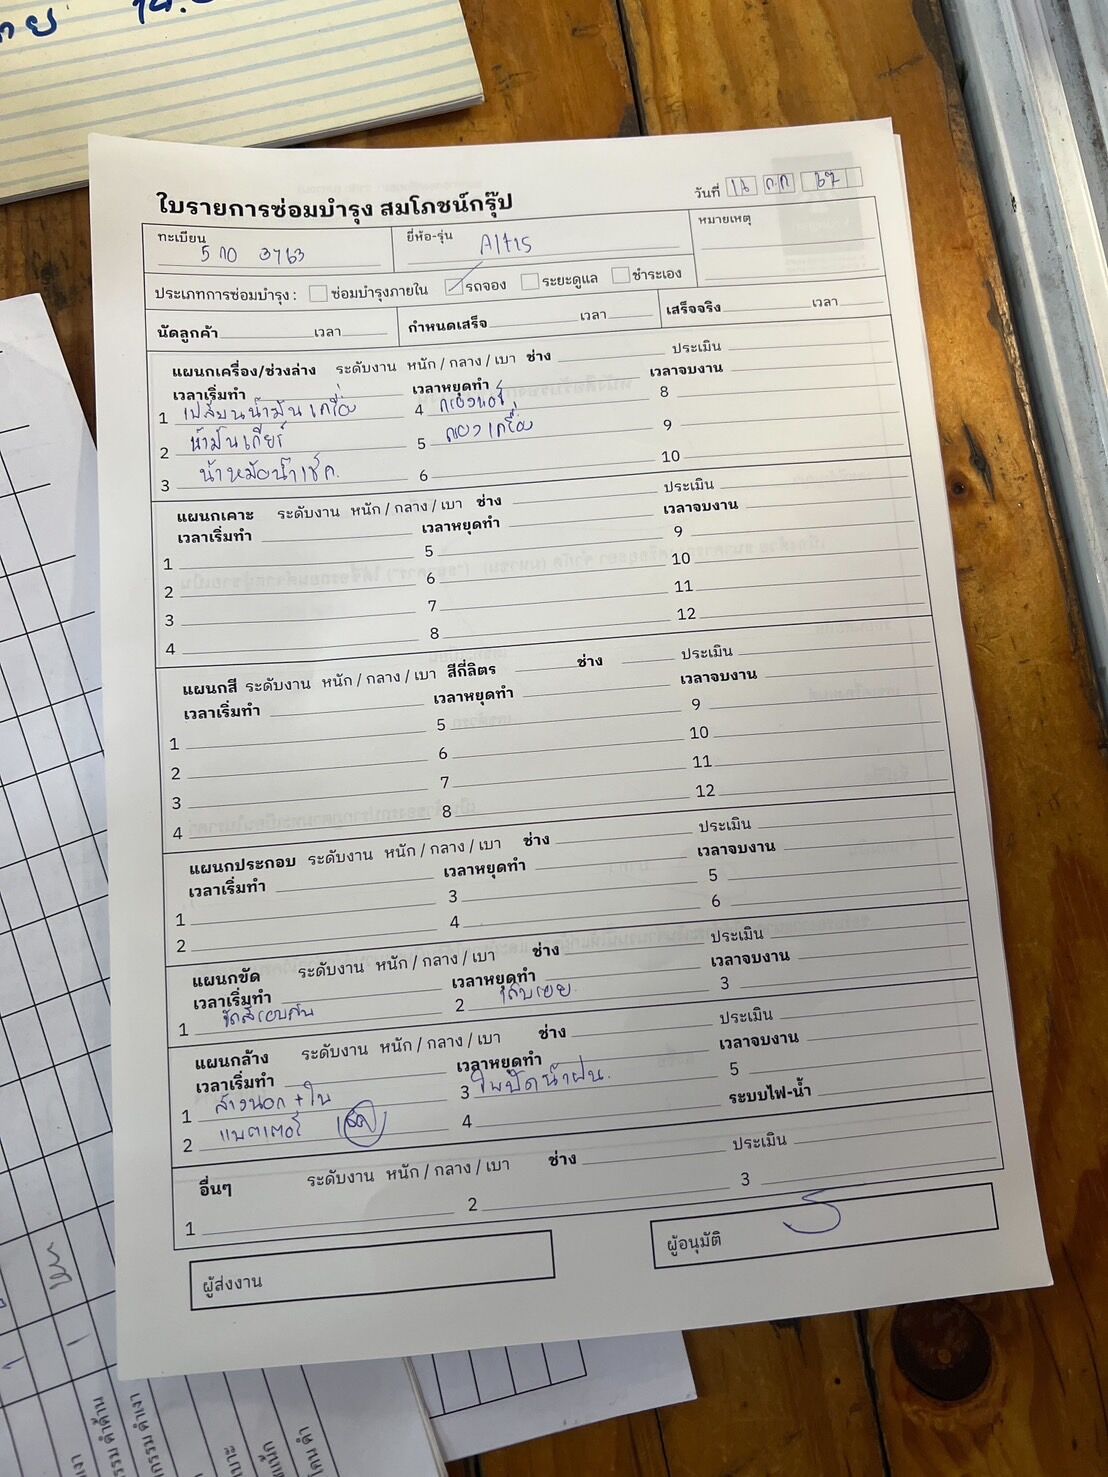 ใบรายการซ่อมบำรุง สมโภชน์กรุ๊ป
วันที่ ก.ค 67
ทะเบียน 5 กอ 3763 ยี่ห้อ-รุ่น Altis หมายเหตุ
ประเภทการซ่อมบำรุง : ซ่อมบำรุงภายใน รถจอง ระยะดูแล ชำระเอง
นัดลูกค้า เวลา กำหนดเสร็จ เวลา เสร็จจริง เวลา
แผนกเครื่อง/ช่วงล่าง ระดับงาน หนัก / กลาง / เบา ช่าง ประเมิน
เวลาเริ่มทำ เวลาหยุดทำ เวลาจบงาน
1 เปลี่ยนน้ำมันเครื่อง 4 กรองแอร์ 8
2 น้ำมันเกียร์ 5 กรองเครื่อง 9
3 น้ำหม้อน้ำเช็ค. 6 10
แผนกเคาะ ระดับงาน หนัก / กลาง / เบา ช่าง ประเมิน
เวลาเริ่มทำ เวลาหยุดทำ เวลาจบงาน
1 5 9
2 6 10
3 7 11
4 8 12
แผนกสี ระดับงาน หนัก / กลาง / เบา สีกี่ลิตร ช่าง ประเมิน
เวลาเริ่มทำ เวลาหยุดทำ เวลาจบงาน
1 5 9
2 6 10
3 7 11
4 8 12
แผนกประกอบ ระดับงาน หนัก / กลาง / เบา ช่าง ประเมิน
เวลาเริ่มทำ เวลาหยุดทำ เวลาจบงาน
1 3 5
2 4 6
แผนกขัด ระดับงาน หนัก / กลาง / เบา ช่าง ประเมิน
เวลาเริ่มทำ เวลาหยุดทำ เวลาจบงาน
1 ขัดสีรอบคัน 2 เก็บรอย. 3
แผนกล้าง ระดับงาน หนัก / กลาง / เบา ช่าง ประเมิน
เวลาเริ่มทำ เวลาหยุดทำ เวลาจบงาน
1 ล้างนอก + ใน 3 ใบปัดน้ำฝน. 5
2 แบตเตอรี่ เช็ค 4 ระบบไฟ-น้ำ
อื่นๆ ระดับงาน หนัก / กลาง / เบา ช่าง ประเมิน
1 2 3
ผู้ส่งงาน ผู้อนุมัติ